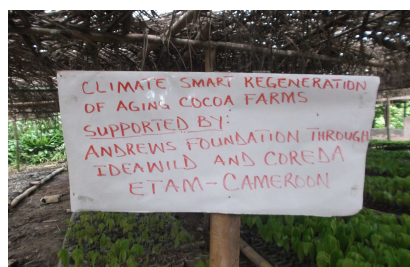 CLIMATE SMART REGENERATION
OF AGING COCOA FARMS
SUPPORTED BY:
ANDREWS FOUNDATION THROUGH
IDEAWILD AND COREDA
ETAM-CAMEROON